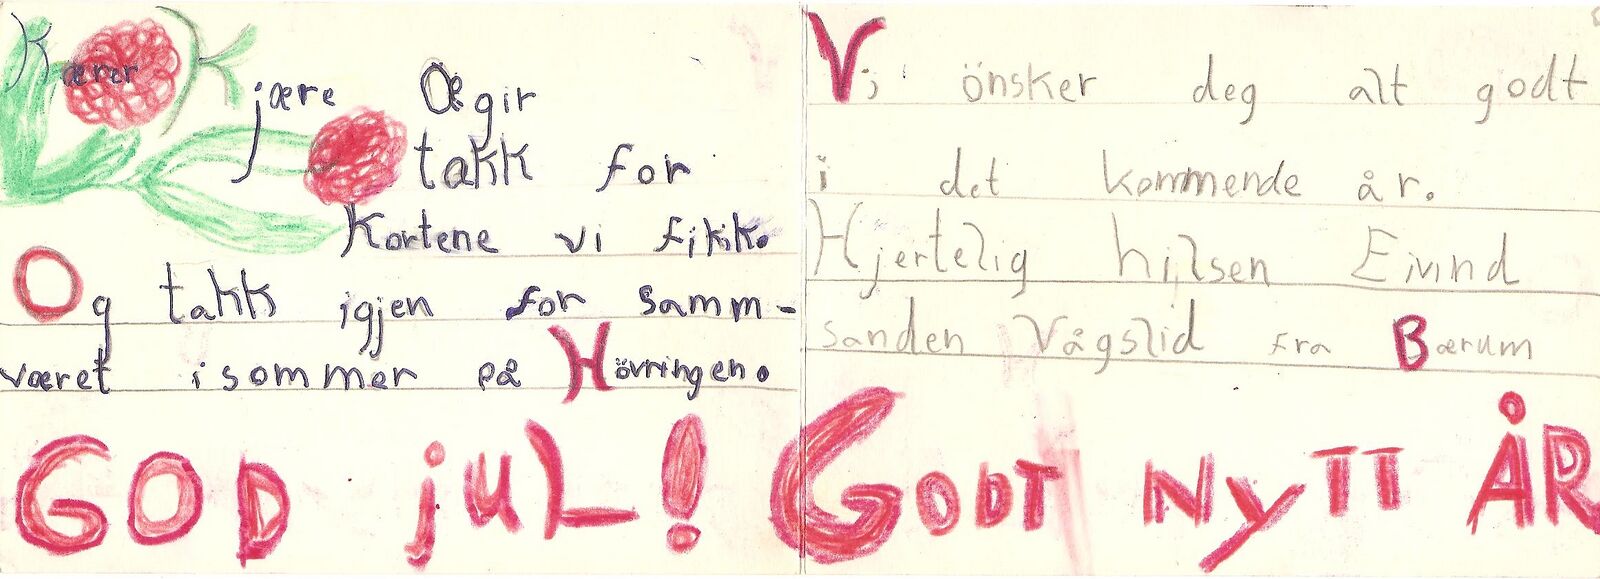 Kjære Ægir
takk for
Kortene vi fikk.
Og takk igjen for samm-
været i sommer på Hövringen.
GOD jUL!
Vi önsker deg alt godt
i det kommende år.
Hjertelig hilsen Eivind
sanden Vågslid fra Bærum
GODT NYTT ÅR